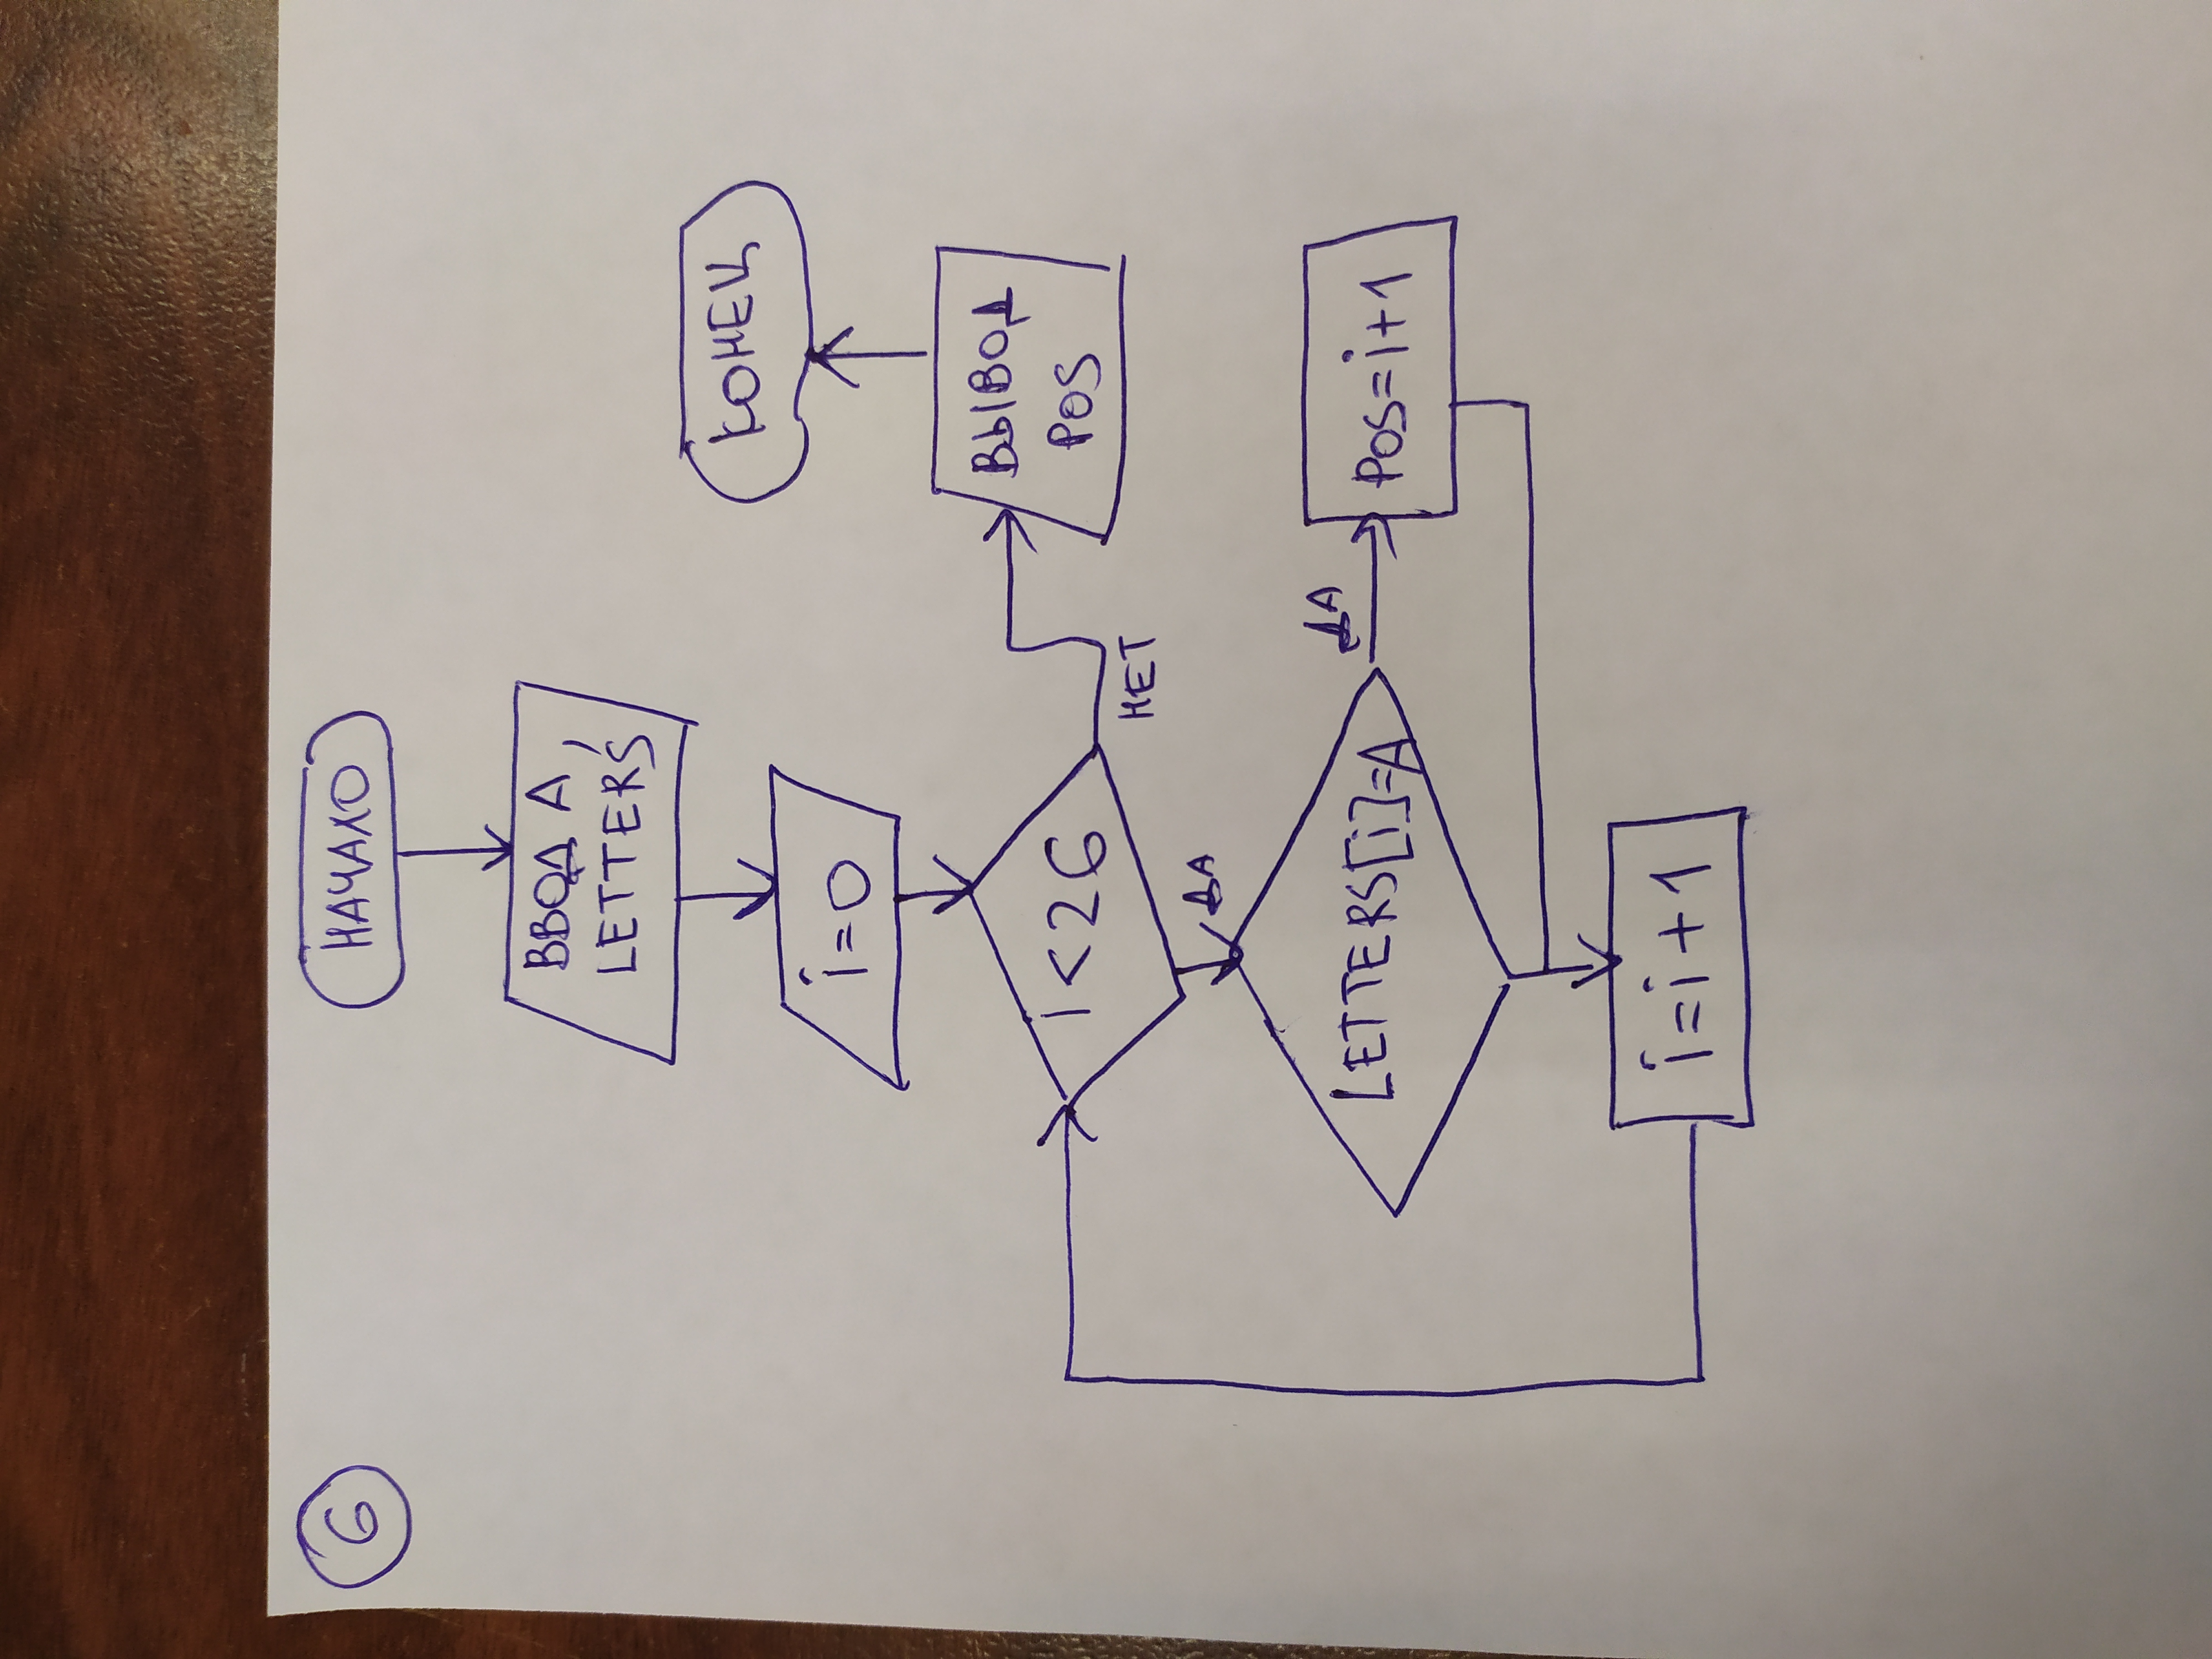 6
НАЧАЛО
ВВОД A,
LETTERS
i=0
i<26
НЕТ
ВЫВОД
POS
КОНЕЦ
ДА
LETTERS[i]=A
ДА
POS=i+1
i=i+1